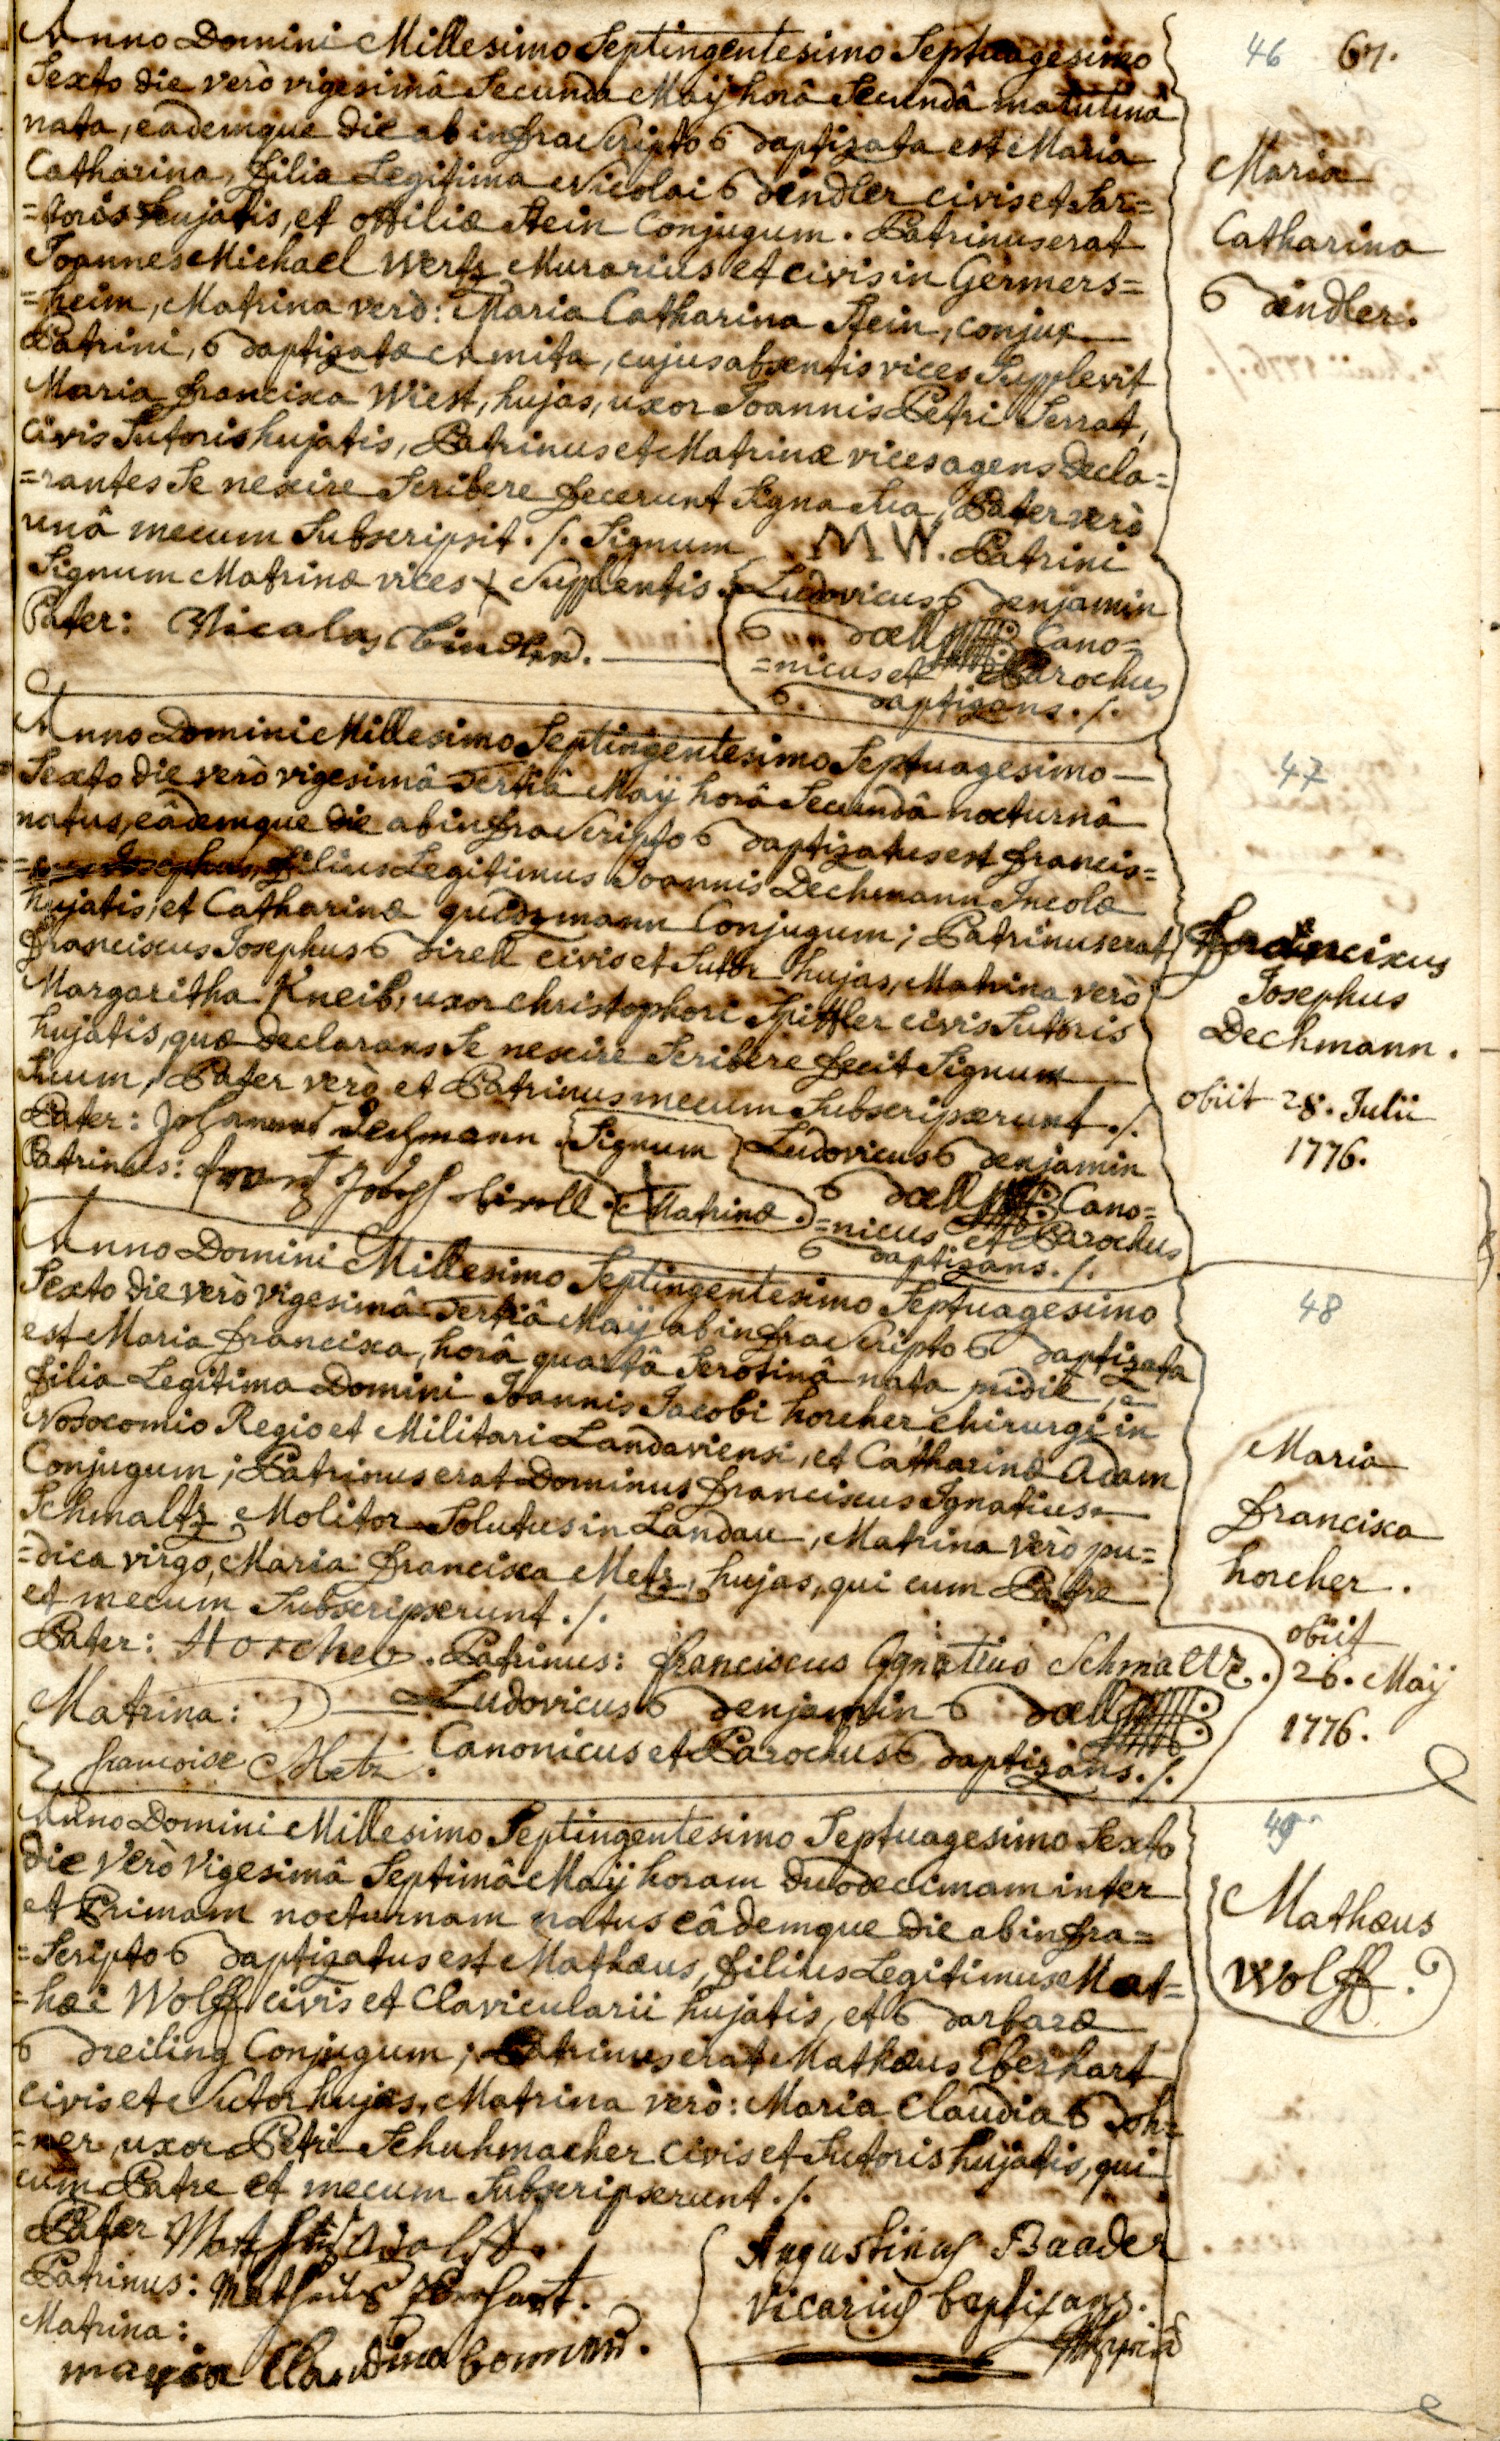 46 67.
Anno Domini Millesimo Septingentesimo Septuagesimo
Sexto die verò vigesimâ Secunda Maÿ horâ Secundâ matutinâ
nata, eademque die ab infra Scripto Baptizata est Maria
Catharina, filia Legitima Nicolai Bindler civis et Sar=
=toris hujatis, et ottiliæ Stein Conjugum. Patrinus erat
Joannes Michael Wertz Murarius et civis in Germers=
=heim, Matrina verò: Maria Catharina Stein, conjux
Patrini, Baptizatæ amita, cujus absentis vices Supplevit
Maria francisca Wiest, hujas, uxor Joannis Petri Serrat,
civis Sutoris hujatis, Patrinus et Matrinæ vices agens decla=
=rantes Se nescire Scribere fecerunt Signa Sua, Pater verò
unâ mecum Subscripsit. /. Signum MW. Patrini
Signum Matrinæ vices + Supplentis.
Pater: Nicolas Bindler.
Ludovicus Benjamin
Bœll Cano=
=nicus et Parochus
Baptizans. /.
Maria
Catharina
Bindler.
Anno Domini Millesimo Septingentesimo Septuagesimo
Sexto die verò vigesimâ Tertiâ Maÿ horâ Secundâ nocturnâ
natus, eâdemque die ab infra Scripto Baptizatus est francis=
filius Legitimus Joannis Dechmann Incolæ
hujatis, et Catharinæ guidzmann Conjugum; Patrinus erat
franciscus Josephus Birell civis et Sutor hujas, Matrina verò
Margaritha Kneib, uxor christophori Spittler civis Sutoris
hujatis, quæ declarans Se nescire Scribere fecit Signum
Suum, Pater verò et Patrinus mecum Subscripserunt. /.
Pater: Johannes Dechmann
Patrinus: frantz Joseph birell.
Signum
+ Matrinæ.
Ludovicus Benjamin
Bœll Cano=
=nicus et Parochus
Baptizans. /.
47
franciscus
Josephus
Dechmann.
obiit 28. Julii
1776.
Anno Domini Millesimo Septingentesimo Septuagesimo
Sexto die verò vigesimâ Tertiâ Maÿ ab infra Scripto Baptizata
est Maria francisca, horâ quartâ Serotinâ nata pridie,
filia Legitima Domini Joannis Jacobi horcher chirurgi in
Nosocomio Regio et Militari Landaviensi, et Catharinæ Adam
Conjugum; Patrinus erat Dominus franciscus Ignatius
Schmaltz Molitor Solutus in Landau, Matrina verò pu=
=dica virgo, Maria francisca Metz, hujas, qui cum Patre
et mecum Subscripserunt. /.
Pater: Horcher. Patrinus: franciscus Ignatius Schmaltz.
Matrina: Ludovicus Benjamin Bœll
francoise Metz. Canonicus et Parochus Baptizans. /.
48
Maria
francisca
horcher.
obiit
26. Maÿ
1776.
Anno Domini Millesimo Septingentesimo Septuagesimo Sexto
die verò vigesimâ Septimâ Maÿ horam duodecimam inter
et Primam nocturnam natus eâdemque die ab infra=
=Scripto Baptizatus est Mathæus, filius Legitimus Mat=
=hæi Wolff civis et Clavicularii hujatis, et Barbaræ
Breiling Conjugum; Patrinus erat Mathæus Eberhart
civis et Sutor hujas, Matrina verò: Maria Claudia Boh=
=ner, uxor Petri Schuhmacher civis et Sutoris hujatis, qui
cum Patre et mecum Subscripserunt. /.
Pater Matheus Wolff.
Patrinus: Matheus Eberhart.
Matrina:
maria Claudina
Augustinus Baader
Vicarius baptizans.
49
Mathæus
Wolff.